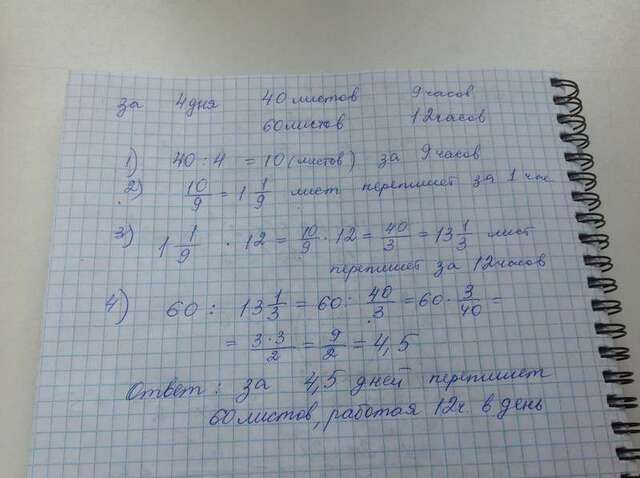 за 4дня 40листов 9часов
60листов 12часов
1) 40:4 = 10(листов) за 9часов
2) 10/9 = 1 1/9 лист перепишет за 1 час
3) 1 1/9 · 12 = 10/9 · 12 = 40/3 = 13 1/3 лист
перепишет за 12часов
4) 60 : 13 1/3 = 60 : 40/3 = 60 · 3/40 =
= 3·3/2 = 9/2 = 4,5
Ответ: за 4,5 дней перепишет
60листов, работая 12ч. в день